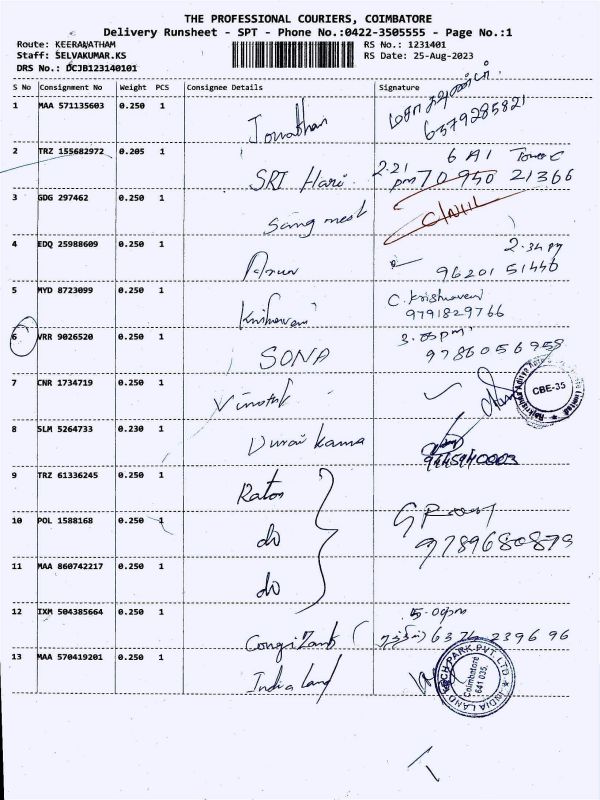 THE PROFESSIONAL COURIERS, COIMBATORE
Delivery Runsheet - SPT - Phone No.:0422-3505555 - Page No.:1
Route: KEERANATHAM
RS No.: 1231401
Staff: SELVAKUMAR.KS
RS Date: 25-Aug-2023
DRS No.: DCJB123140101
S No Consignment No Weight PCS Consignee Details Signature
1 MAA 571135603 0.250 1 Jonathan
6379285821
2 TRZ 155682972 0.205 1 SRI Hari 2.21 pm 6 A1 Tower C
70950 21366
3 GDG 297462 0.250 1
4 EDQ 25988609 0.250 1 Arun 2.34 pm
96201 51440
5 MYD 8723099 0.250 1 Krishnaveni C. Krishnaveni
9791829766
6 VRR 9026520 0.250 1 SONA 3.05pm
9786056959
7 CNR 1734719 0.250 1 Vinoth
CBE-35
8 SLM 5264733 0.230 1 Durai Kama
9445940003
9 TRZ 61336245 0.250 1
10 POL 1588168 0.250 1 do
9789680879
11 MAA 860742217 0.250 1 do
12 IXM 504385664 0.250 1 5.00pm
6374 2396 96
13 MAA 570419201 0.250 1 India Land
INDIA LAND TECH PARK PVT. LTD
Coimbatore
641 035.